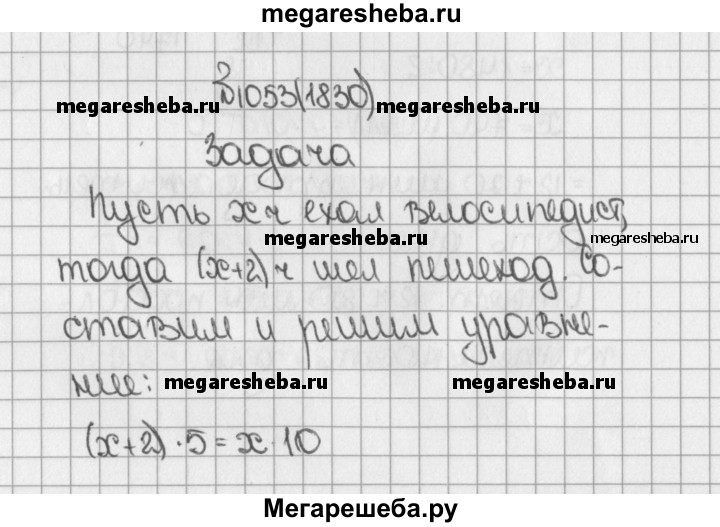 megaresheba.ru
№1053(1830)
megaresheba.ru megaresheba.ru
Задача
Пусть x ч ехал велосипедист,
megaresheba.ru megaresheba.ru
тогда (x+2) ч шел пешеход. Со-
ставим и решим уравне-
ние:
megaresheba.ru megaresheba.ru
(x+2)·5=x·10
Мегарешеба.ру